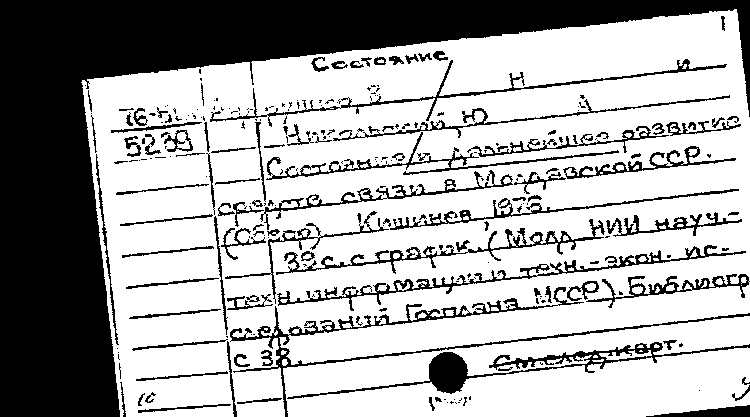 1
Состояние
76-51 В Н И
5239 Никольский, Ю А
Состояние и дальнейшее развитие
средств связи в Молдавской ССР.
(Обзор). Кишинев, 1976.
39 с. с график. (Молд НИИ науч.-
техн. информации и техн.-экон. ис-
следований Госплана МССР). Библиогр
с 38.
См след. карт.